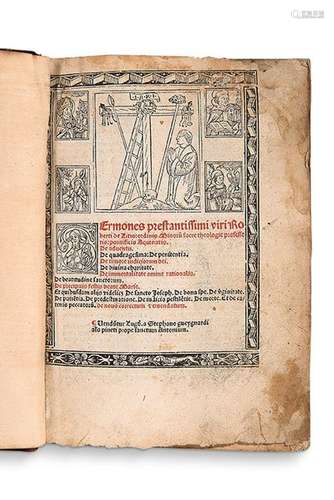 I.N.R.I.
Ermones prestantissimi viri Ro
berti de Minorū sacre theologie professo
ris: pontificis Aquinatis.
De aduentu.
De quadragesima: De penitentia.
De timore iudiciorum dei.
De diuina charitate.
De immortalitate anime rationalis.
De beatitudine sanctorum.
De precipuis festis beate Marie.
Et quibusdam aliis videlicet De sancto Joseph. De bona spe. De
De patiētia. De predestinatione. De malicia pestilētie. De morte. Et de
peccatorū. de nouo correctum et emendatum.
¶ Uenduntur Lugd. a Stephano gueygnardi
alio pineti prope sanctum Antonium.